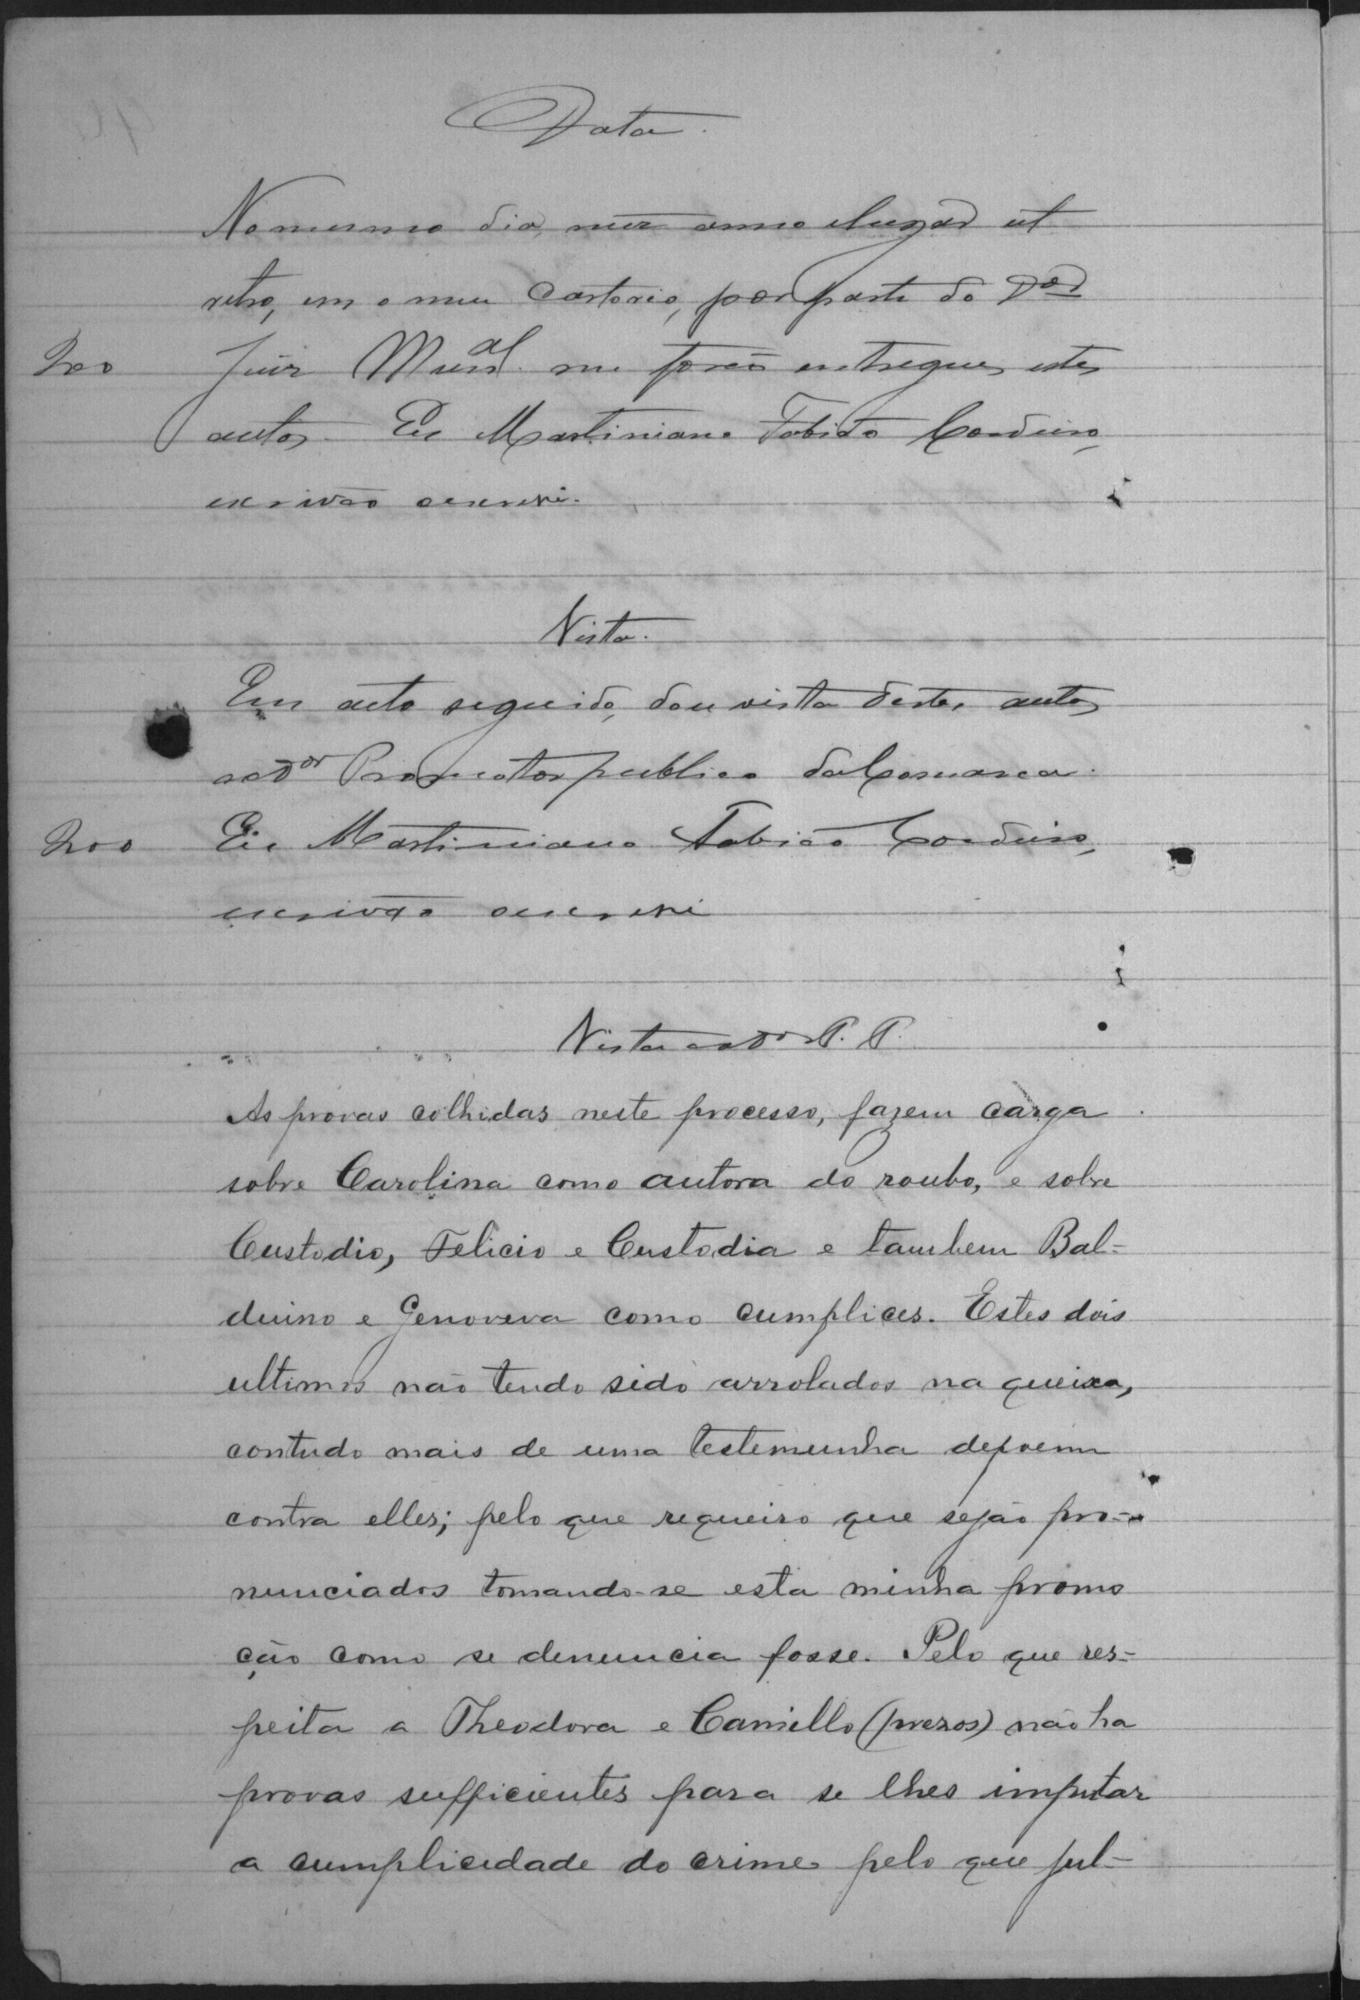 Data.
No mesmo dia, mez anno e lugar ut
retro, em o meu Cartorio, por parte do Dor
200 Juiz Munal. me forão entregues estes
autos. Eu Martiniano Fabião Cordeiro,
escrivão o escrevi.
Vista.
Em acto seguido, dou vista destes autos
ao Dor Promotor publico da Comarca.
200 Eu Martiniano Fabião Cordeiro,
escrivão o escrevi
Vista ao Dr P. P.
As provas colhidas neste processo, fazem carga
sobre Carolina como autora do roubo, e sobre
Custodio, Felicio e Custodia e tambem Bal=
duino e Genoveva como cumplices. Estes dois
ultimos não tendo sido arrolados na queixa,
contudo mais de uma testemunha depoem
contra elles; pelo que requeiro que sejão pro=
nunciados tomando-se esta minha promo
ção como se denuncia fosse. Pelo que res=
peita a Theodora e Camillo (prezos) não ha
provas sufficientes para se lhes imputar
a cumplicidade do crime pelo que jul-